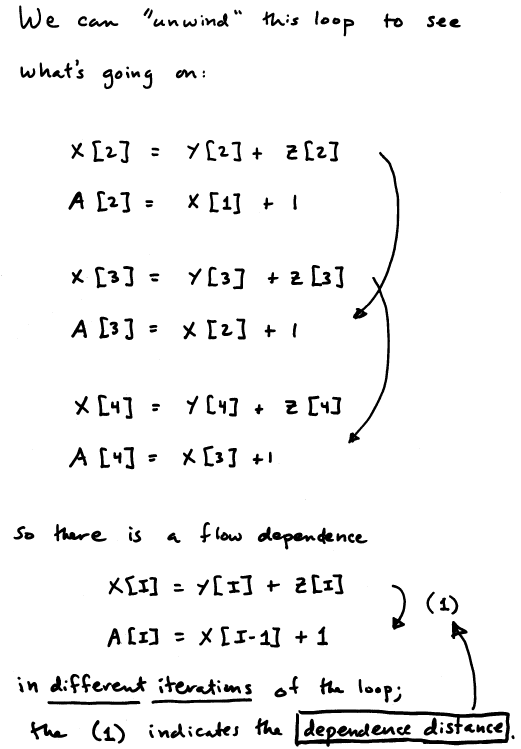 We can "unwind" this loop to see
what's going on:
X[2] = Y[2] + Z[2]
A[2] = X[1] + 1
X[3] = Y[3] + Z[3]
A[3] = X[2] + 1
X[4] = Y[4] + Z[4]
A[4] = X[3] + 1
So there is a flow dependence
X[I] = Y[I] + Z[I]
(1)
A[I] = X[I-1] + 1
in different iterations of the loop;
the (1) indicates the dependence distance.